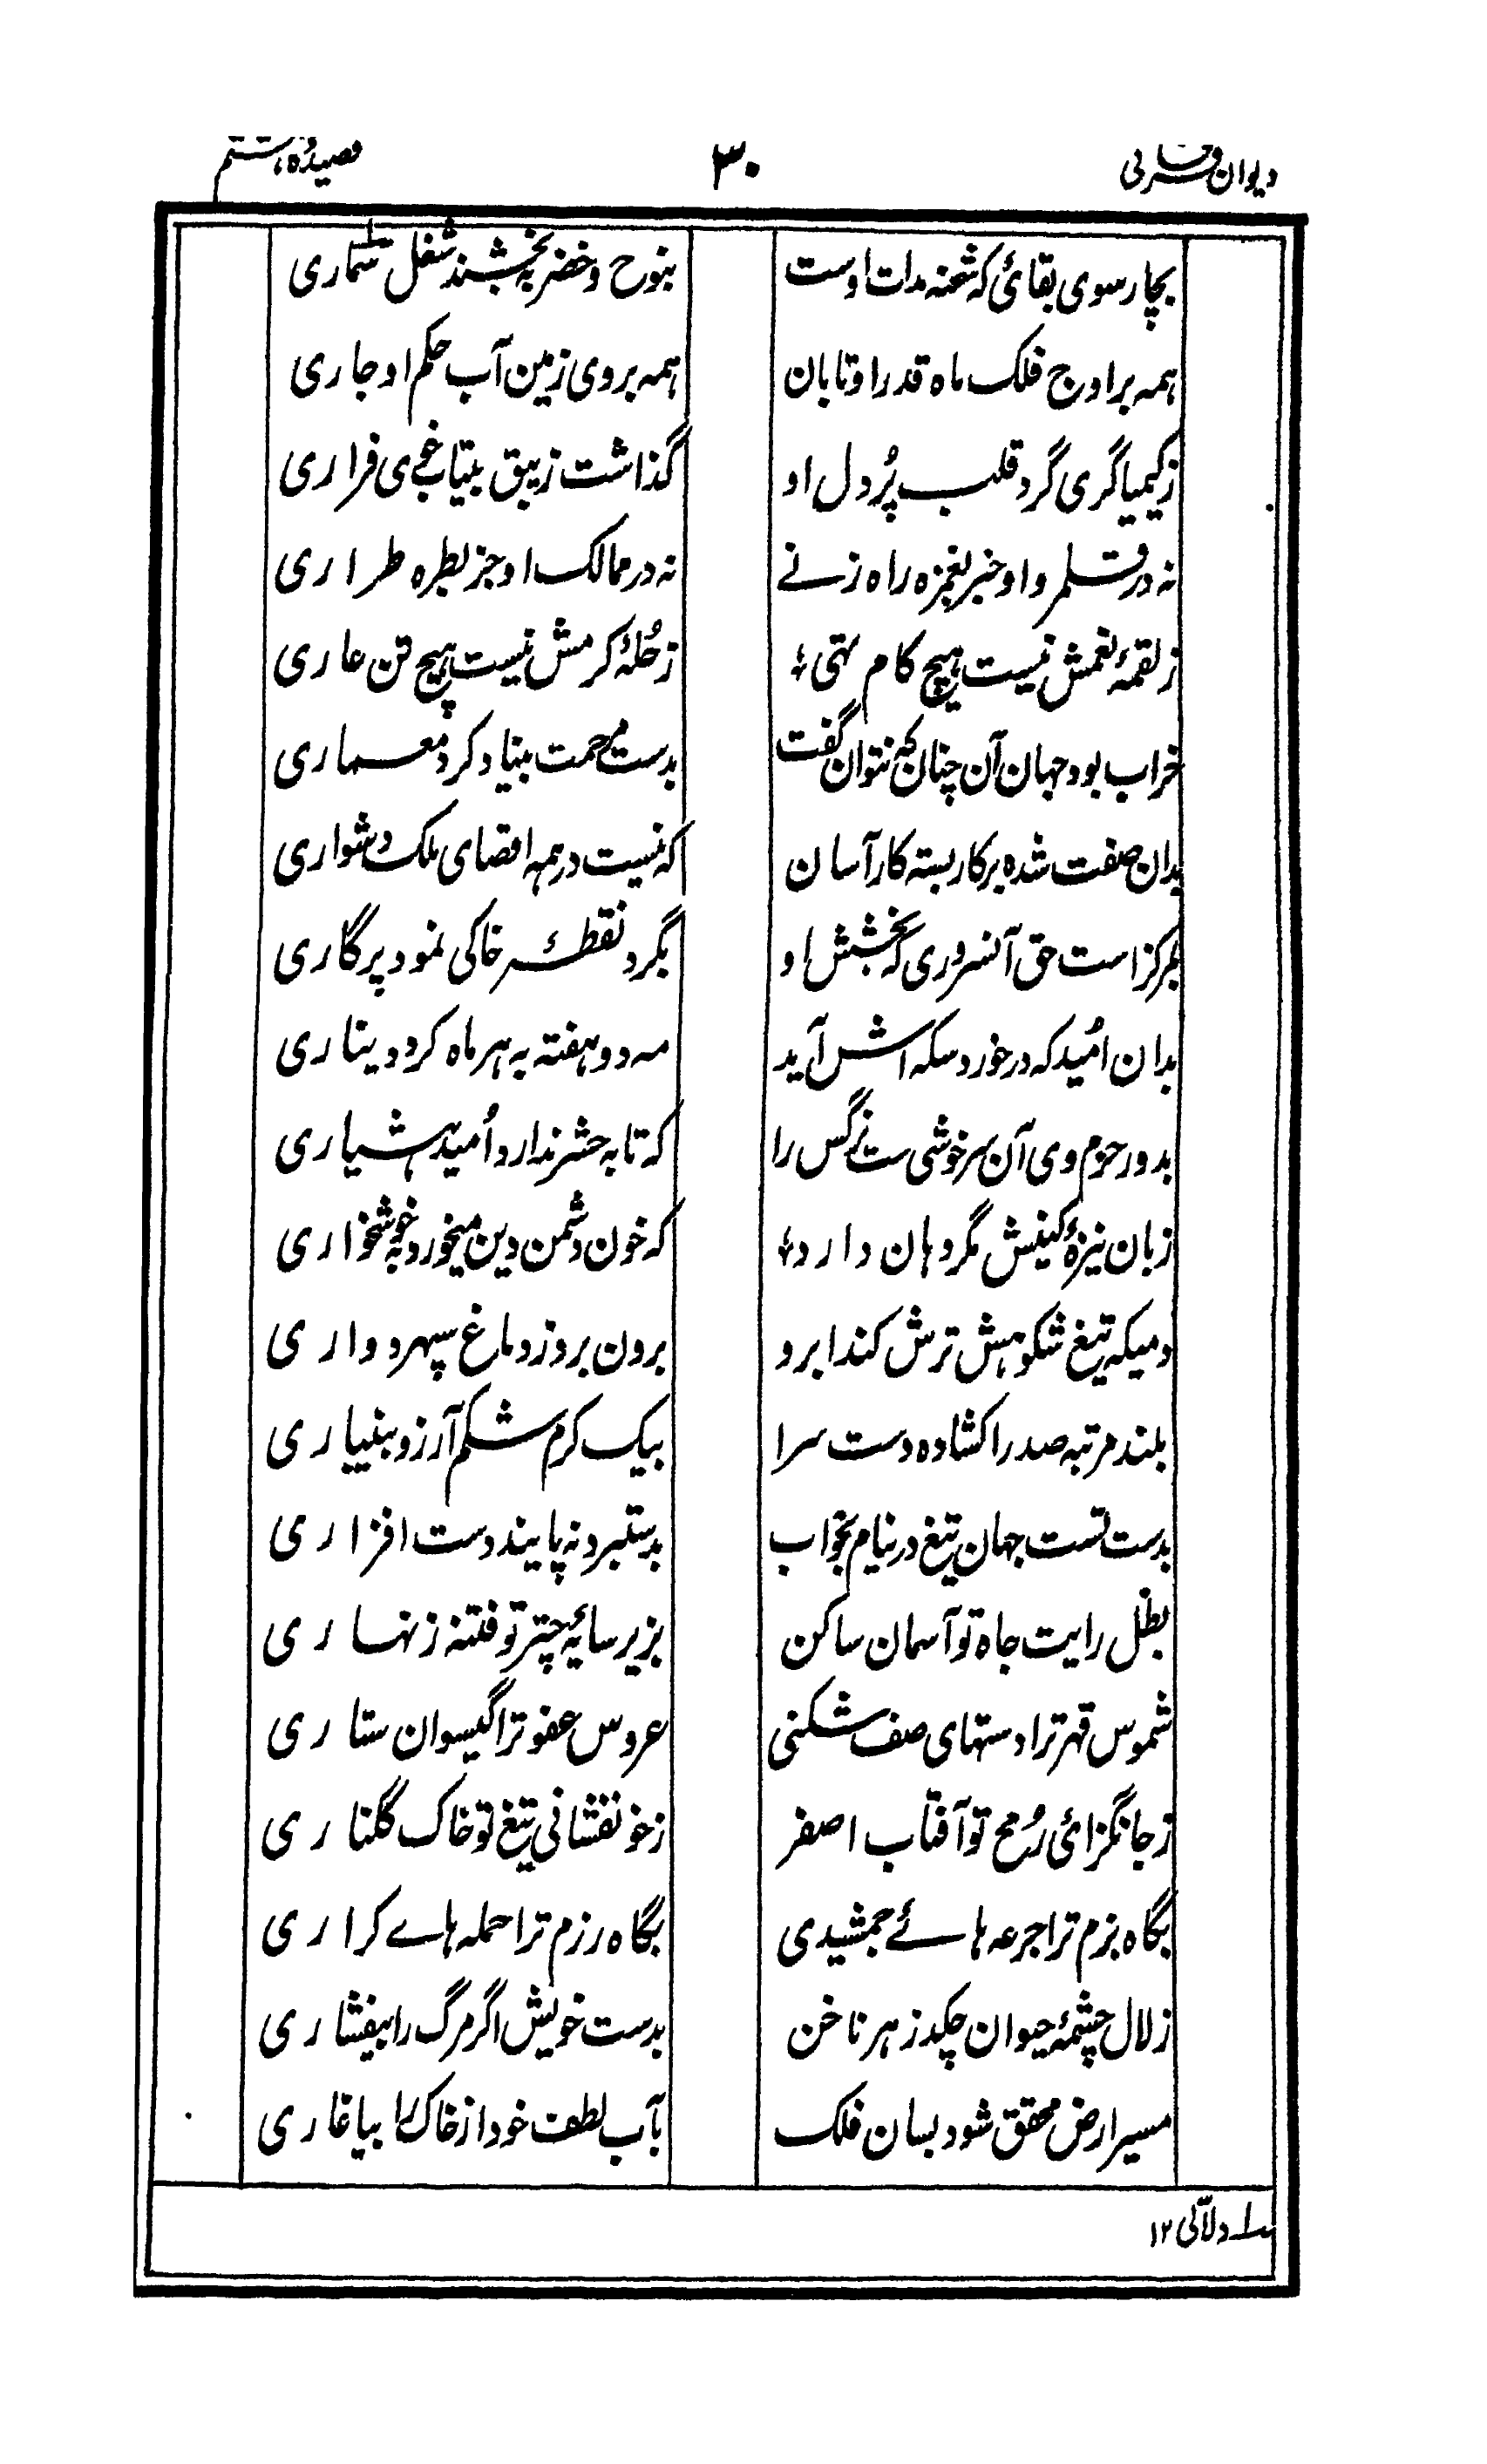 دیوان فرقانی ۳۰ قصیدهٔ هشتم
بچار سوی بقائی که شحنه مدات اوست بنوح و خضر به بخشند شغل سمساری
همه بر اوج فلک ماه قدر او تابان همه بروی زمین آب حکم او جاری
ز کیمیا گری گرد قلب پُر دل او گذاشت زیبق بیتاب خوی فراری
نه در قلمرو او جز بغمزه راه زنے نه در ممالک او جز بطره طراری
ز لقمهٔ نعمش نیست هیچ کام تهی ز حُلهٔ کرمش نیست هیچ تن عاری
خراب بود جهان آن چنان که نتوان گفت بدست مرحمت بنیاد کرد معماری
بدان صفت شده بر کار بسته کار آسان که نیست در همه اقصای ملک دشواری
بمرکز است حق آنسروری که بخشش او بگرد نقطهٔ خاکی نمود پرگاری
بدان اُمید که در خورد سکه اش آید مه دو هفته به هر ماه کرد دیناری
بدور حزم وی آن سرخوشی ست نرگس را که تا به حشر ندارد اُمید هشیاری
زبان نیزهٔ کینش مگر دهان دارد که خون دشمن دین میخورد به خونخواری
دمیکه تیغ شکوهش ترش کند ابرو برون برد ز دماغ سپهر دواری
بلند مرتبه صدرا کشاده دست سرا بیک کرم شکم آرزو بینباری
بدست تست جهان تیغ در نیام بخواب بدستبرد نه پایند دست افزاری
بظل رایت جاه تو آسمان ساکن بزیر سایهٔ چتر تو فتنه زنهاری
شموس قهر ترا دستهای صف شکنی عروس عفو ترا گیسوان ستاری
ز جانگزائی رُمح تو آفتاب اصفر ز خونفشانی تیغ تو خاک گلناری
بگاه بزم ترا جرعه هائے جمشیدی بگاه رزم ترا حمله هاے کراری
زلال چشمهٔ حیوان چکد ز هر ناخن بدست خویش اگر مرگ را بیفشاری
مسیر ارض محقق شود بسان فلک بآب لطف خود از خاک را بیاغاری
دلالی ۱۲